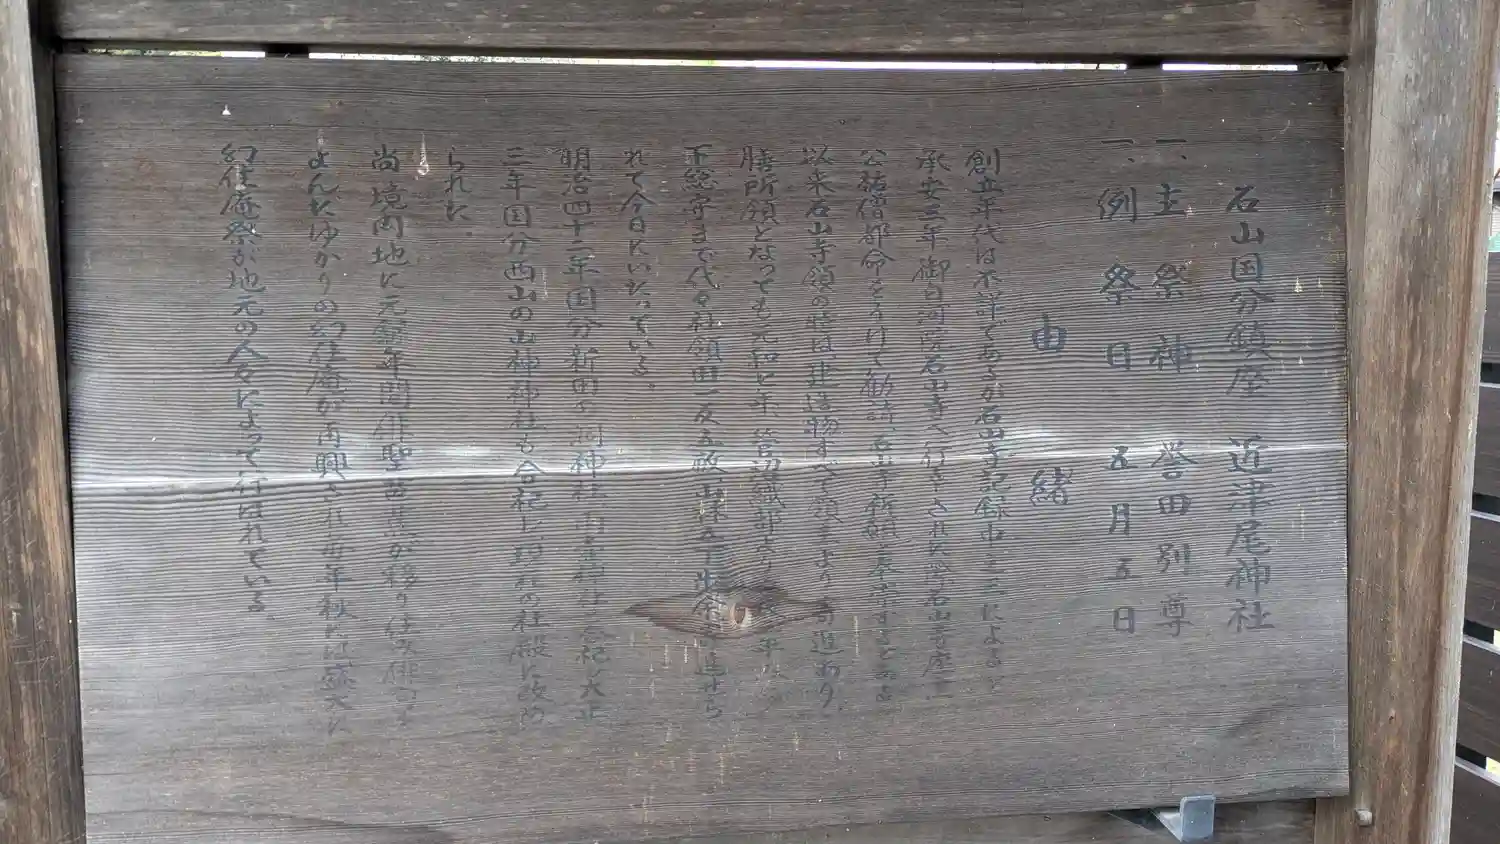 石山国分鎮座 近津尾神社
一、主祭神 誉田別尊
一、例祭日 五月五日
由緒
創立年代は不詳であるが石山寺記録
承安三年御白河院石山寺へ行幸された際石山寺座主
公祐僧都命をうけて勧請石山寺祈願
以来石山寺領の時は建造物すべて領主より寄進あり、
膳所領となっても元和七年、菅沼織部
正総守まで代々社領田一反五畝、山林
れて今日にいたっている。
明治四十二年国分新田の洞神社 合祀し大正
三年国分西山の山神神社も合祀し現在の社殿に改め
られた。
尚境内地に元禄年間俳聖芭蕉が移り住み俳句を
よんだゆかりの幻住庵が再興され毎年秋には盛大に
幻住庵祭が地元の人々によって行はれている。